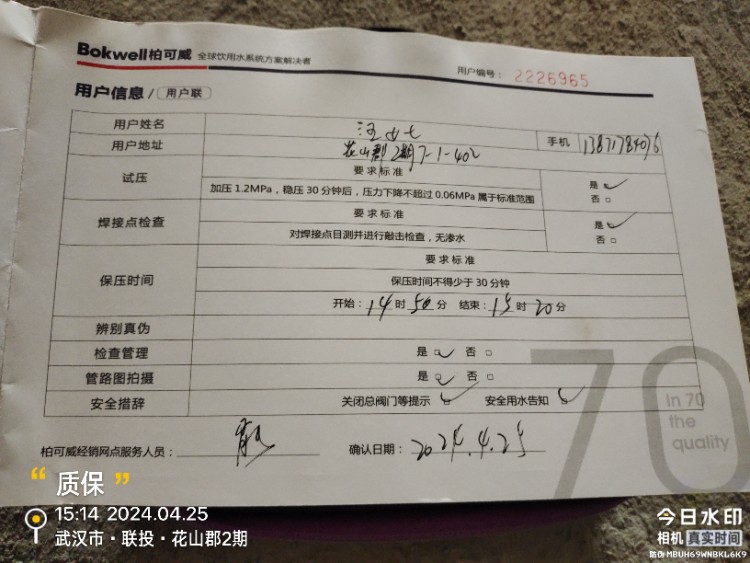 Bokwell柏可威 全球饮用水系统方案解决者
用户编号： 2226965
用户信息 / 用户联
用户姓名 汪女士
用户地址 花山郡2期7-1-402 手机 13871784076
试压 要求标准 是 ☑
加压 1.2MPa，稳压 30 分钟后，压力下降不超过 0.06MPa 属于标准范围 否 □
焊接点检查 要求标准 是 ☑
对焊接点目测并进行敲击检查，无渗水 否 □
保压时间 要求标准
保压时间不得少于 30 分钟
开始：14 时 50 分 结束：15 时 20 分
辨别真伪
检查管理 是 ☑ 否 □
管路图拍摄 是 ☑ 否 □
安全措辞 关闭总阀门等提示 ☑ 安全用水告知 ☑
70
In 70
the
quality
柏可威经销网点服务人员： 确认日期：2024.4.25
“ 质保 ”
15:14 2024.04.25
武汉市·联投·花山郡2期
今日水印
相机 真实时间
防伪 MBUH69WNBKL6K9